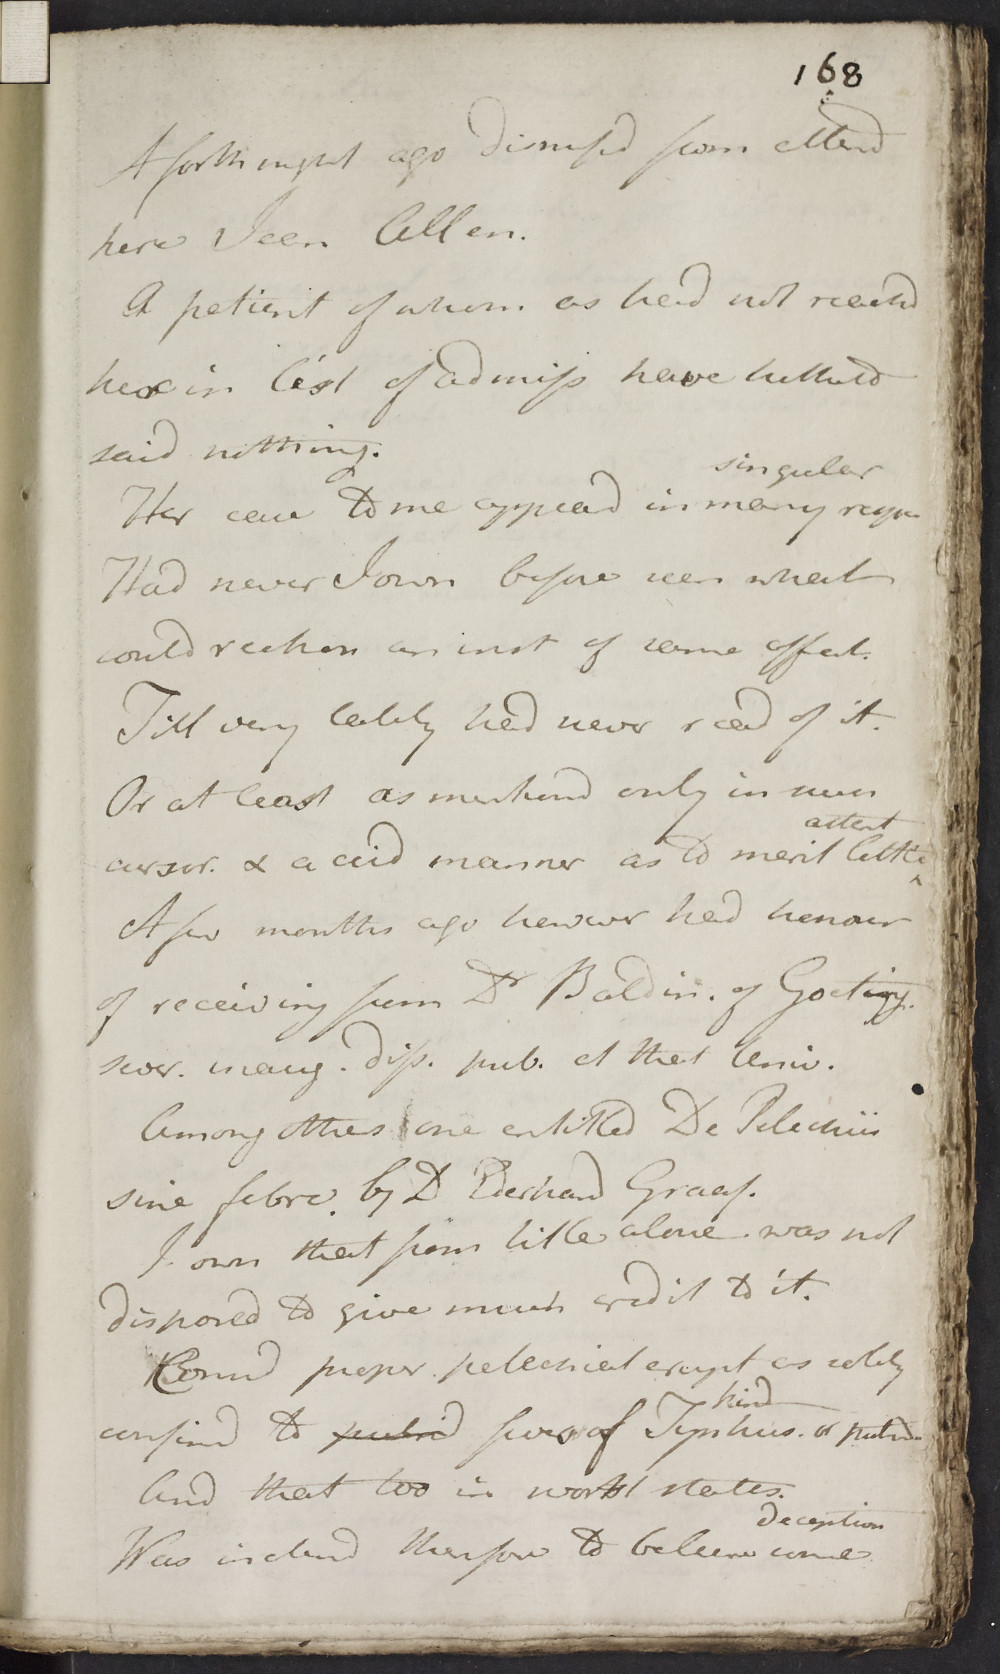 168
A forthnight ago dismissd from attend
here Jean Allen.
A patient of whom as had not reachd
here in List of admiss have hitherto
said nothing.
singular
Her case to me appeard in many respe
Had never I own before seen what
could reckon an inst of same affect.
Till very lately had never read of it.
Or at least as mentiond only in such
attent
cursor. & a manner as to merit little
A few months ago however had honour
of receiving from Dr Baldin. of Goeting.
sever. inaug. diss. pub. at that Univ.
Among others one entitled De Petechiis
sine febre. by D Eberhard Graaf.
I own that from title alone was not
disposed to give much credit to it.
proper petechial erupt as solely
kind
confind to putrid fevers of Typhus. or putrid
And that too in worst states.
deception
Was inclind therefore to believe some